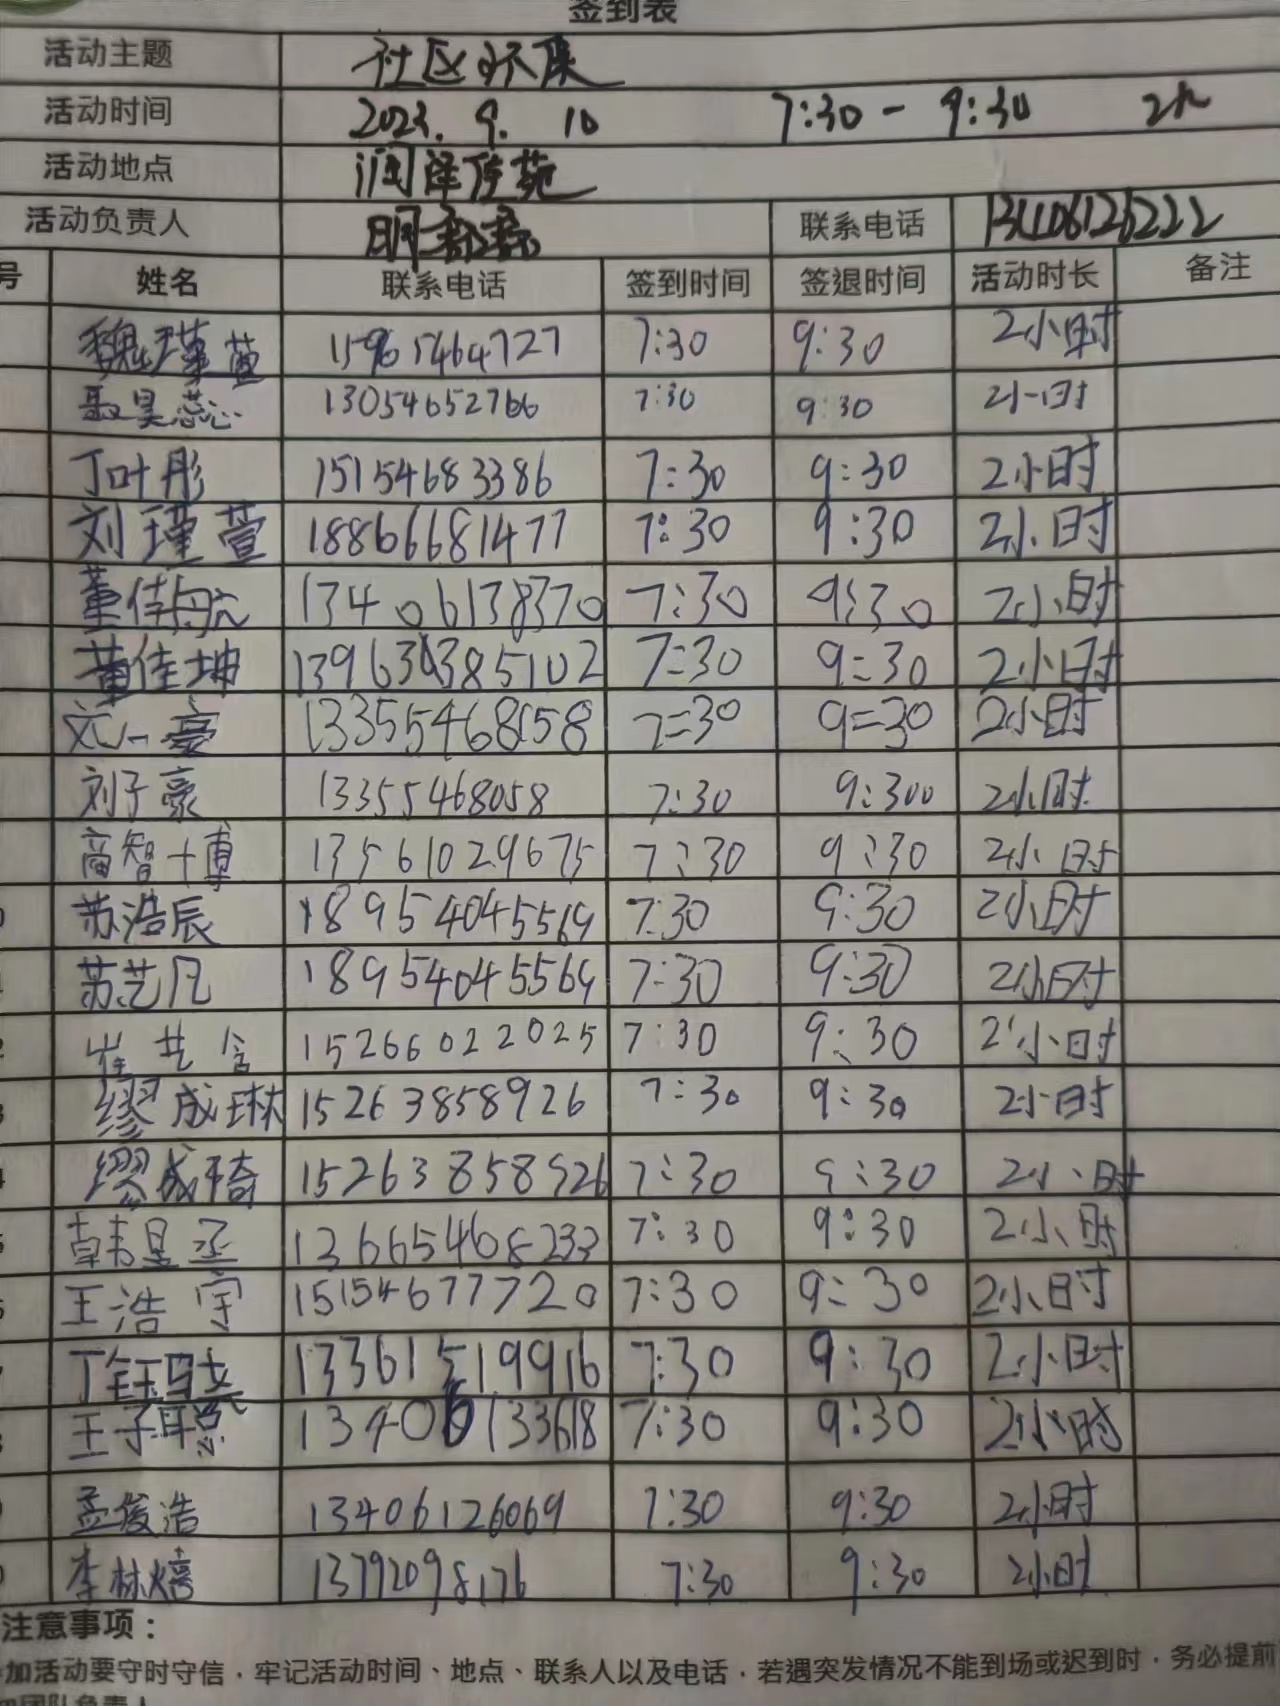 签到表
活动主题 社区环保
活动时间 2023.9.10 7:30-9:30 2h
活动地点 润泽佳苑
活动负责人 明 联系电话 13406126222
号 姓名 联系电话 签到时间 签退时间 活动时长 备注
魏瑾萱 15965464727 7:30 9:30 2小时
聂昊蕊 13054652766 7:30 9:30 2小时
丁叶彤 15154683386 7:30 9:30 2小时
刘瑾萱 18866681477 7:30 9:30 2小时
董佳 13406138370 7:30 9:30 2小时
董佳坤 7:30 9:30 2小时
一豪 13355468158 7=30 9=30 2小时
刘子豪 13355468058 7:30 9:300 2小时
高智博 13561029675 7:30 9:30 2小时
苏浩辰 18954045569 7:30 9:30 2小时
苏艺凡 18954045569 7:30 9:30 2小时
崔艺含 15266022025 7:30 9:30 2小时
缪成琳 15263858926 7:30 9:30 2小时
缪成琦 15263858926 7:30 9:30 2小时
韩昱丞 7:30 9:30 2小时
王浩宇 15154677720 7:30 9:30 2小时
丁钰 7:30 9:30 2小时
王子聪 13406133618 7:30 9:30 2小时
孟俊浩 13406126069 7:30 9:30 2小时
李林熺 13792098176 7:30 9:30 2小时
注意事项：
加活动要守时守信，牢记活动时间、地点、联系人以及电话，若遇突发情况不能到场或迟到时，务必提前
团队负责人